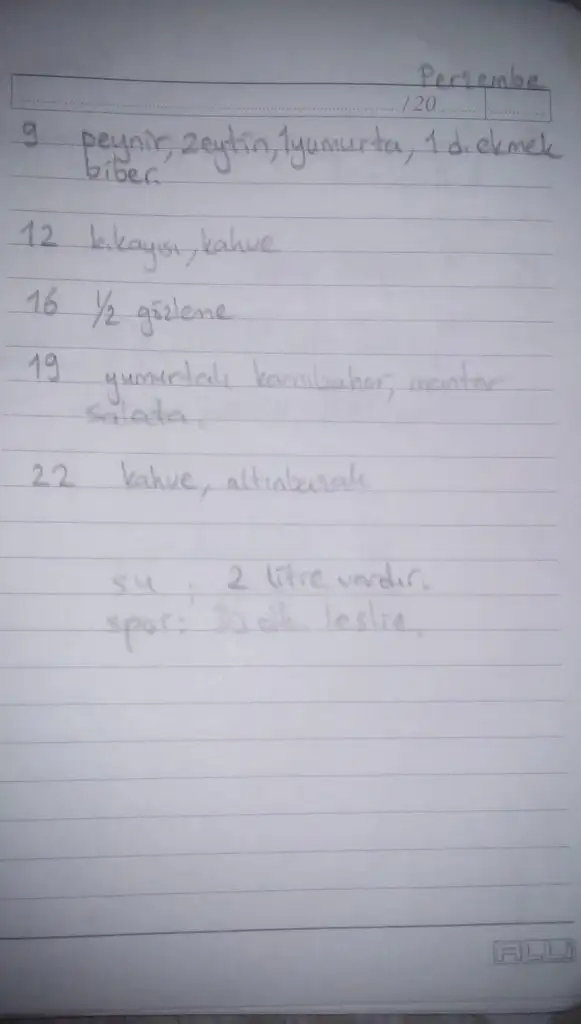 Perşembe
/20
9 peynir, zeytin, 1 yumurta, 1 d. ekmek
biber.
12 k.kayısı, kahve
16 1/2 gözleme
19 yumurtalı karnıbahar, mantar
salata.
22 kahve, altınbaşak
su : 2 litre vardır.
spor: 30 dk leslie.
ALLI